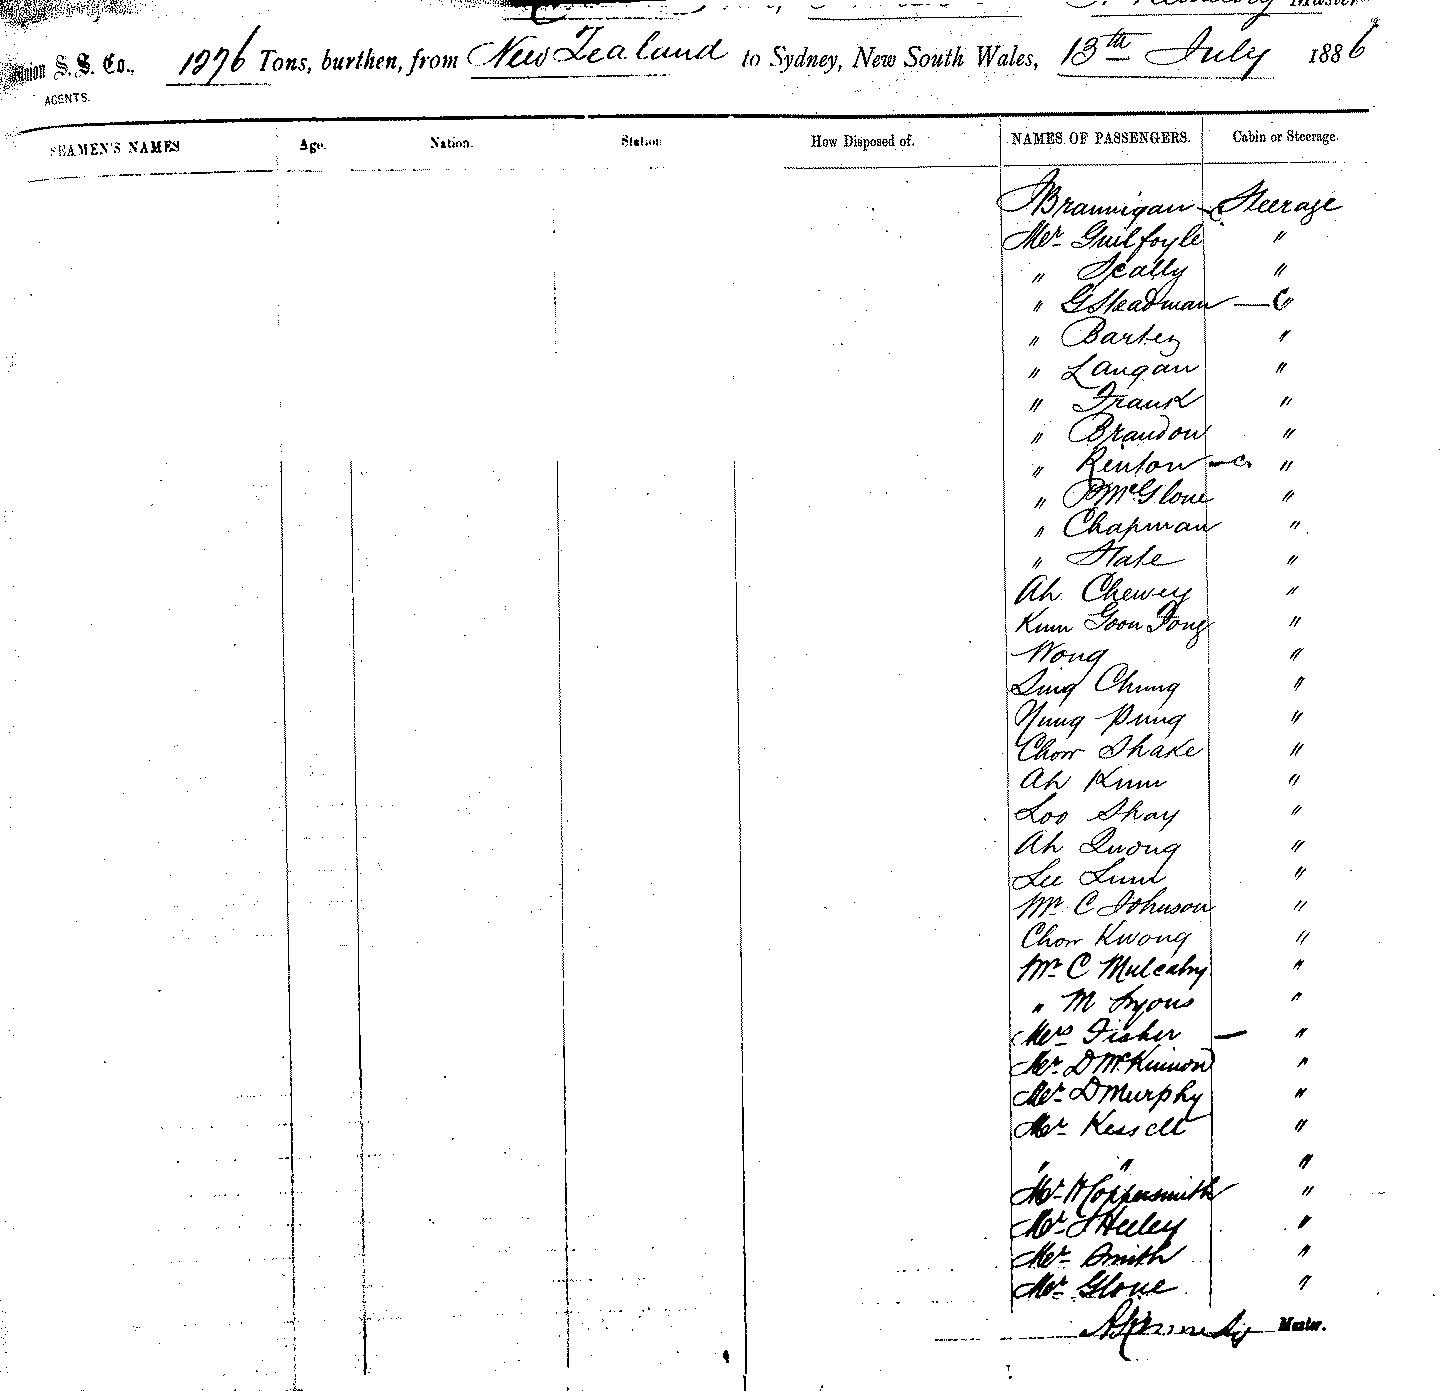 Union S. S. Co., 1276 Tons, burthen, from New Zealand to Sydney, New South Wales, 13th July 1886
AGENTS.
SEAMEN'S NAMES Age. Nation. Station How Disposed of. NAMES OF PASSENGERS. Cabin or Steerage.
Brannigan Steerage
Mr Guilfoyle "
" Scally "
" G Steadman — C "
" Bartez "
" Langan "
" Frank "
" Brandon "
" Renton — c. "
" P McGlone "
" Chapman "
" State "
Ah Chewey "
Kum Goon Fong "
Wong "
Sing Chung "
Nung Pung "
Chow Shake "
Ah Kum "
Loo Shay "
Ah Quong "
Lee Lum "
Mr C Johnson "
Chow Kwong "
Mr C Mulcahy "
" M Lyons "
Mrs Fisher — "
Mr D McKinnon "
Mr D Murphy "
Mr Kessell "
" " "
Mr Coppersmith "
Mr Heeley "
Mr Smith "
Mr Glove "
Kennedy Master.